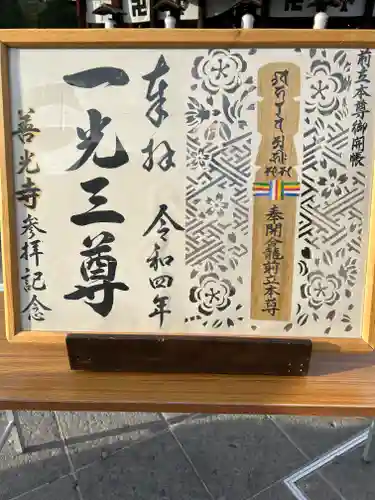 前立本尊御開帳
奉開合龕前立本尊
奉拝
令和四年
一光三尊
善光寺
参拝記念